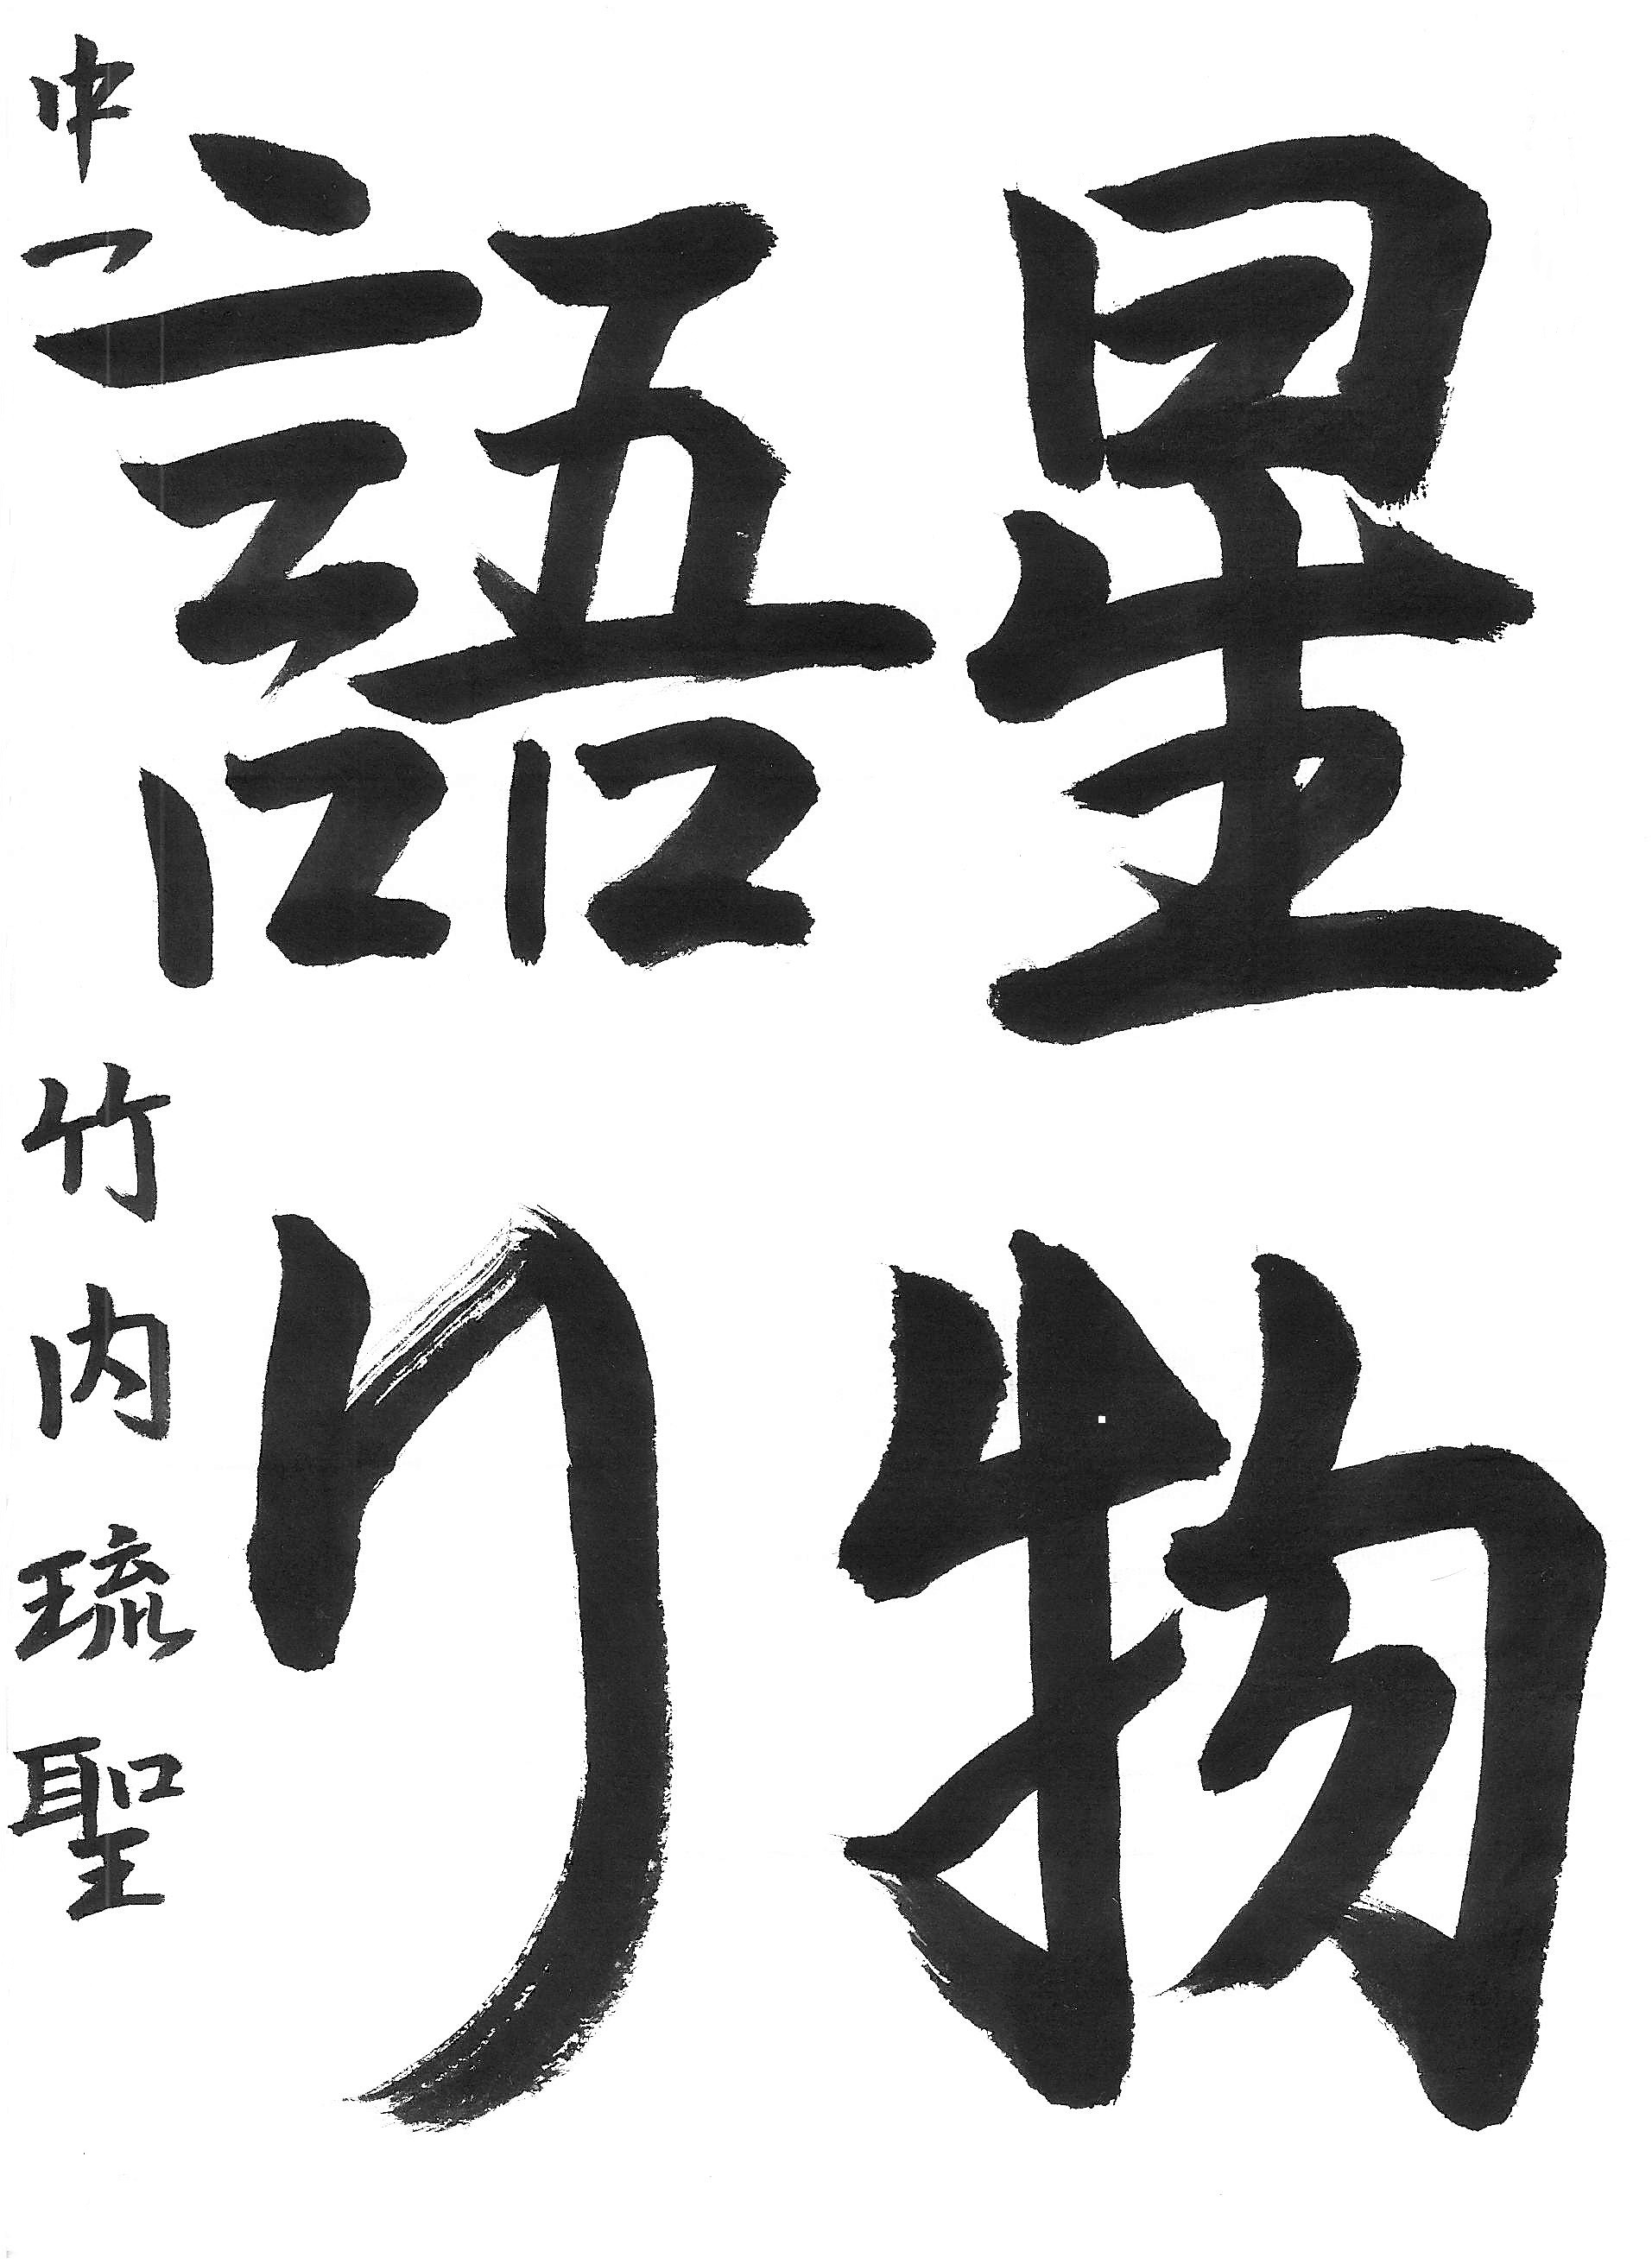 星物
語り
中一 竹内琉聖